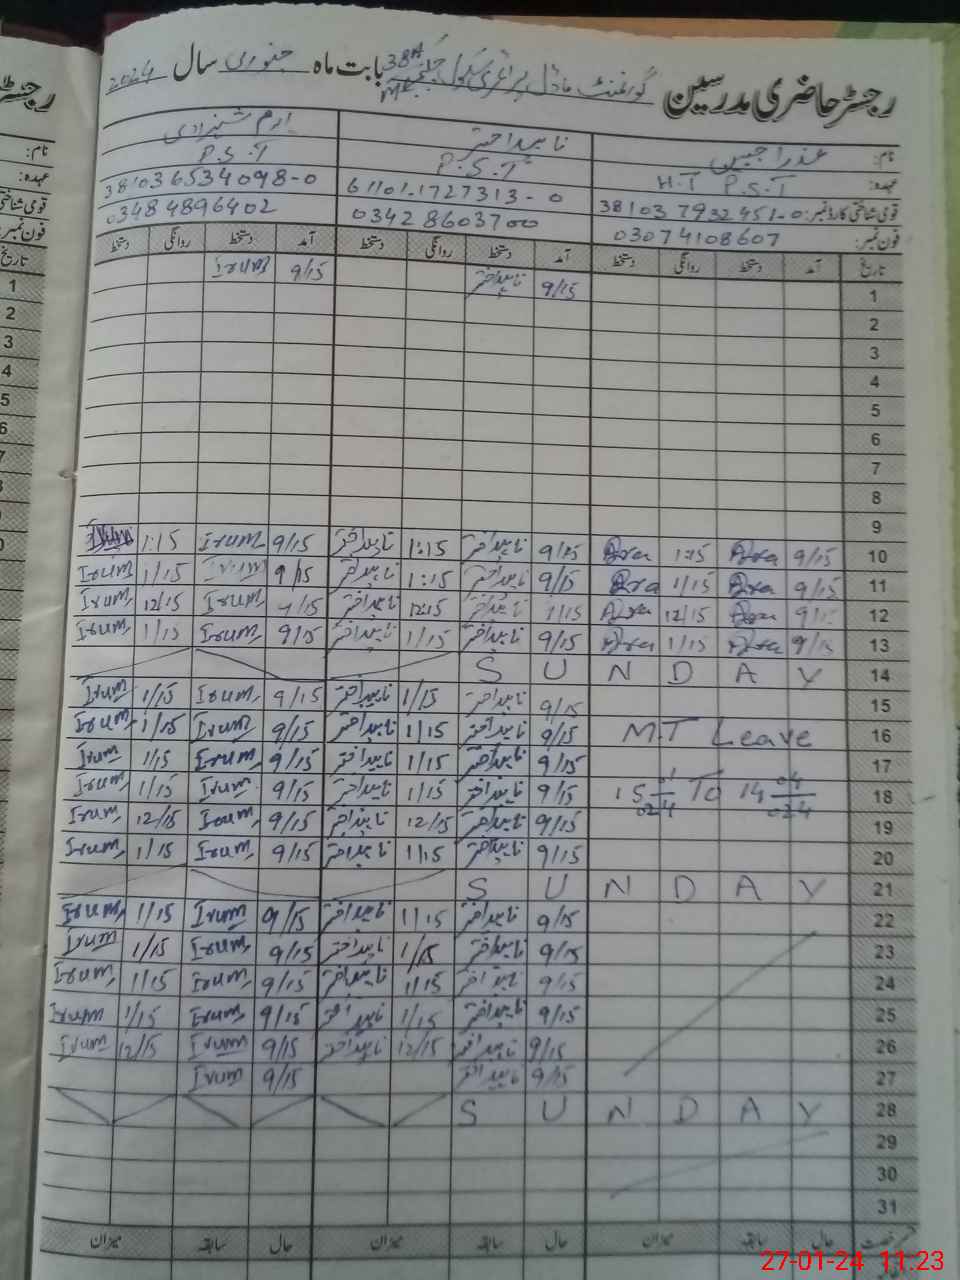 رجسٹر حاضری مدرسین گورنمنٹ ماڈل پرائمری سکول 38A بابت ماہ جنوری سال 2024
نام: عذرا جبیں ناہید اختر ارم شہزادی
عہدہ: H.T P.S.T P.S.T P.S.T
قومی شناختی کارڈ نمبر: 38103 7932451-0 61101-1727313-0 381036534098-0
فون نمبر: 03074108607 03428603700 03484896402
تاریخ آمد دستخط روانگی دستخط آمد دستخط روانگی دستخط آمد دستخط روانگی دستخط
1 9/15 ناہید اختر 9/15 Irum
2
3
4
5
6
7
8
9
10 9/15 1:15 9/15 ناہید اختر 1:15 ناہید اختر 9/15 Irum 1:15 Irum
11 9/15 1/15 9/15 ناہید اختر 1:15 ناہید اختر 9/15 Irum 1/15 Irum
12 12/15 ناہید اختر 12:15 ناہید اختر Irum 12/15 Irum
13 9/15 1/15 9/15 ناہید اختر 1/15 ناہید اختر 9/15 Irum 1/15 Irum
14 S U N D A Y
15 9/15 ناہید اختر 1/15 ناہید اختر 9/15 Irum 1/15 Irum
16 M.T Leave 9/15 ناہید اختر 1/15 ناہید اختر 9/15 Irum 1/15 Irum
17 9/15 ناہید اختر 1/15 ناہید اختر 9/15 Irum 1/15 Irum
18 15 01 024 To 14 04 024 9/15 ناہید اختر 1/15 ناہید اختر 9/15 Irum 1/15 Irum
19 9/15 ناہید اختر 12/15 ناہید اختر 9/15 Irum 12/15 Irum
20 9/15 ناہید اختر 1/15 ناہید اختر 9/15 Irum 1/15 Irum
21 S U N D A Y
22 9/15 ناہید اختر 1/15 ناہید اختر 9/15 Irum 1/15 Irum
23 9/15 ناہید اختر 1/15 ناہید اختر 9/15 Irum 1/15 Irum
24 9/15 ناہید اختر 1/15 ناہید اختر 9/15 Irum 1/15 Irum
25 9/15 ناہید اختر 1/15 ناہید اختر 9/15 Irum 1/15 Irum
26 9/15 ناہید اختر 12/15 ناہید اختر 9/15 Irum 12/15 Irum
27 9/15 ناہید اختر 9/15 Irum
28 S U N D A Y
29
30
31
رخصت حال سابقہ میزان حال سابقہ میزان حال سابقہ میزان
27-01-24 11:23